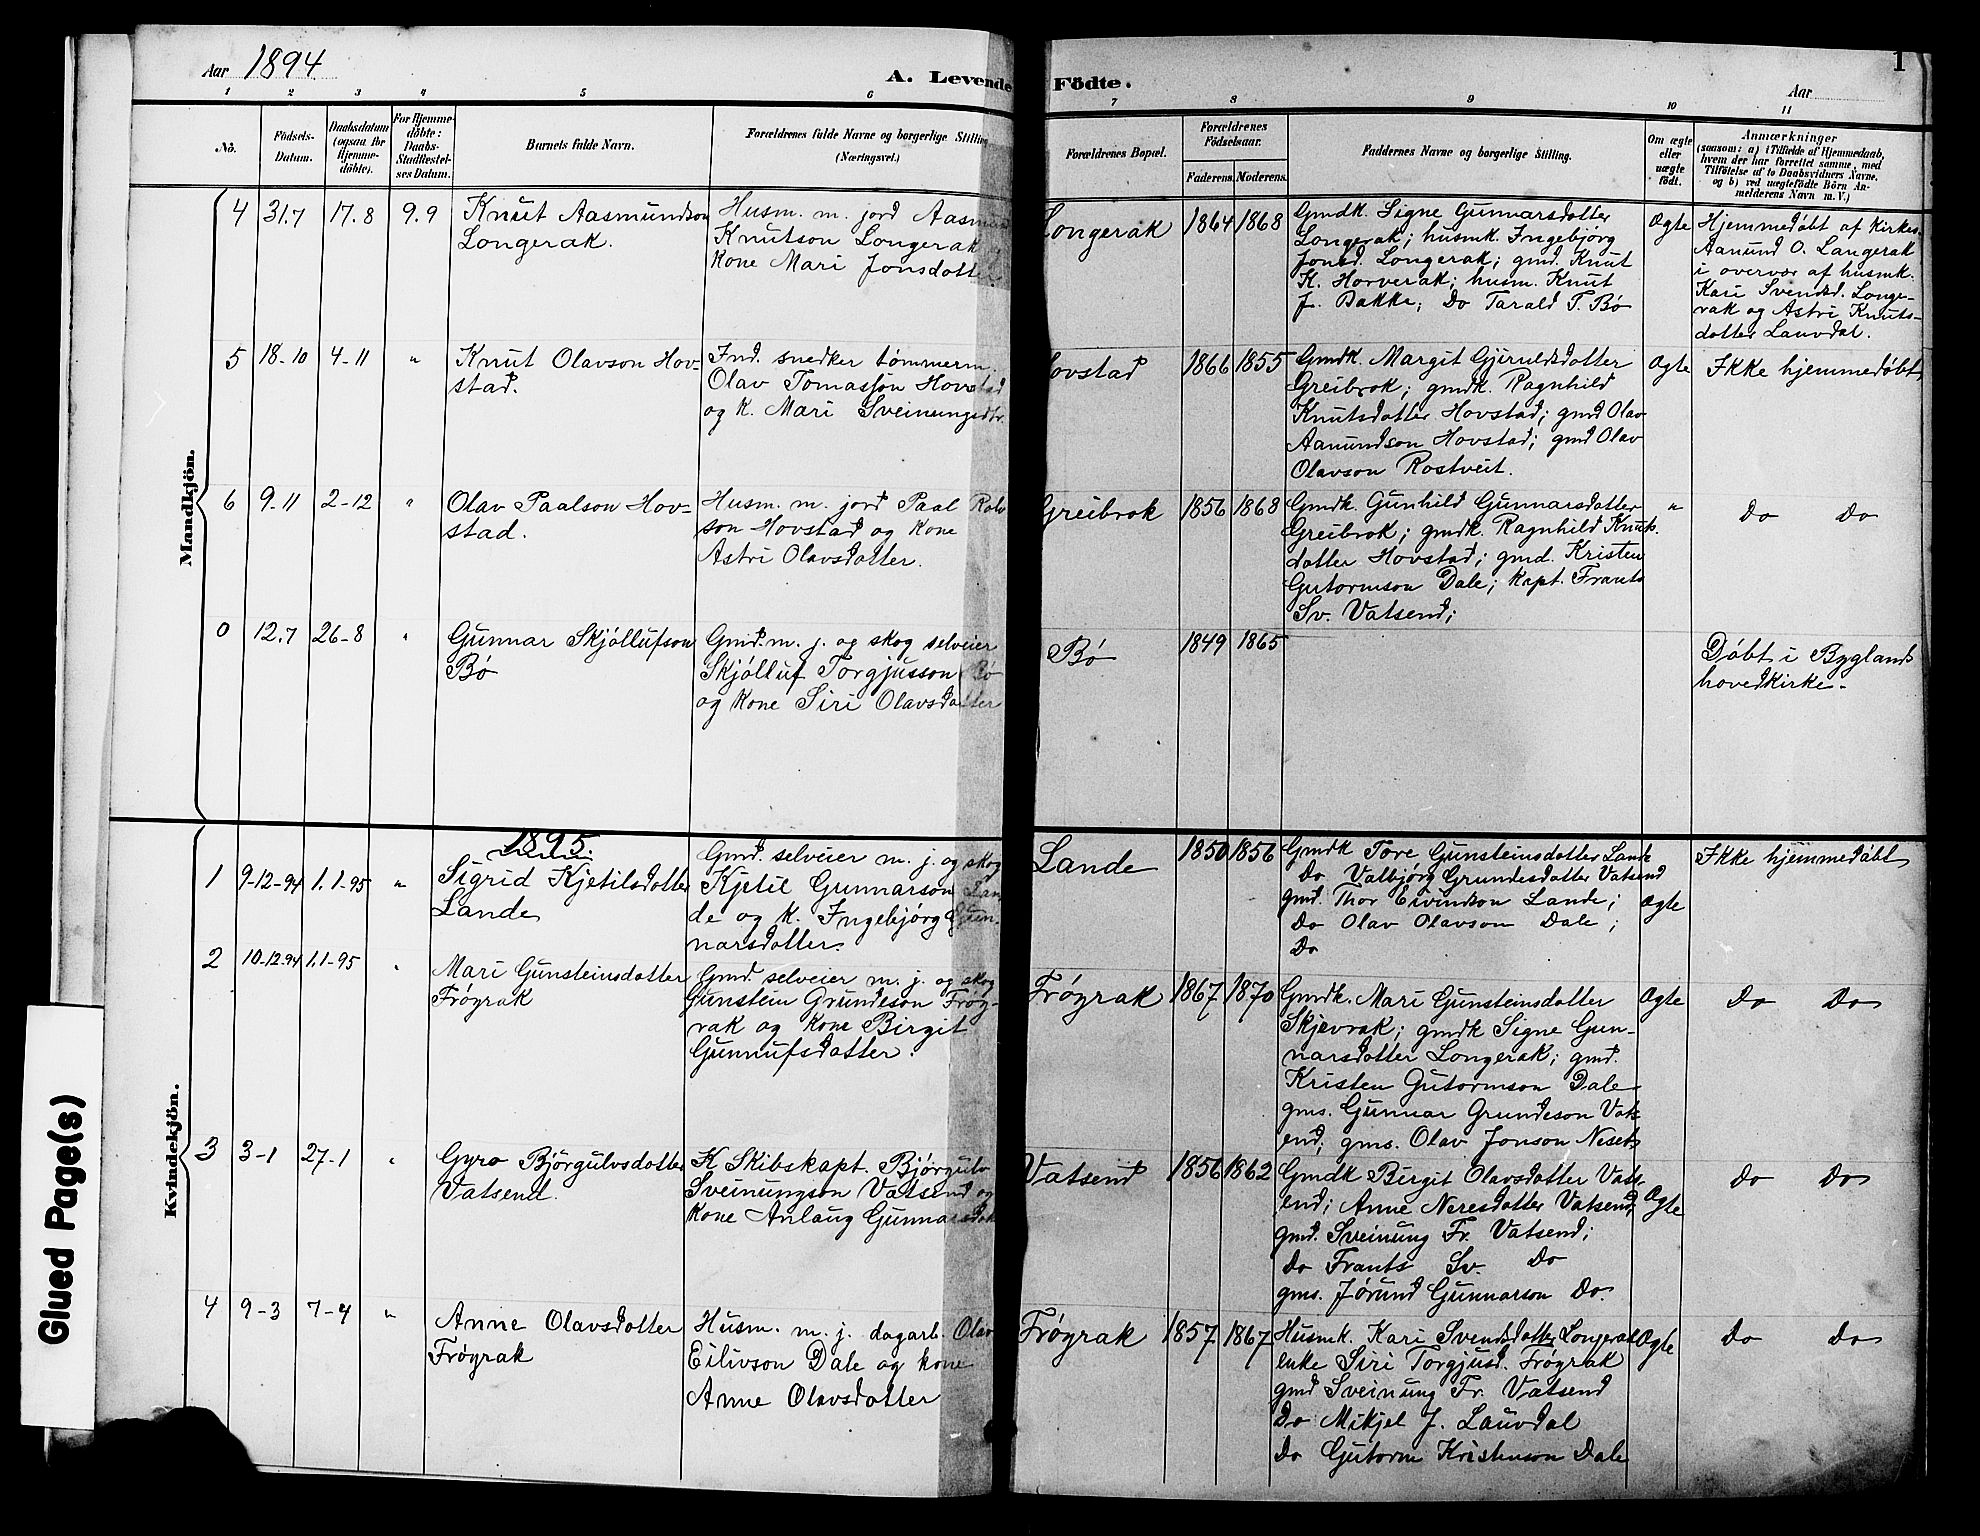 Aar 1894
A. Levende Födte.
Aar
1
1 2 3 4 5 6 7 8 9 10 11
No.
Födsels-
Datum.
Daabsdatum
(ogsaa for
Hjemme-
döbte).
For Hjemme-
döbte:
Daabs-
Stadfæstel-
ses Datum.
Barnets fulde Navn.
Forældrenes fulde Navne og borgerlige Stilling
(Næringsvei.)
Forældrenes Bopæl.
Forældrenes
Födselsaar.
Faderens. Moderens.
Faddernes Navne og borgerlige Stilling.
Om ægte
eller
uægte
födt.
Anmærkninger
(saasom: a) i Tilfælde af Hjemmedaab,
hvem der har forrettet samme, med
Tilföielse af to Daabsvidners Navne,
og b) ved uægtefödte Börn An-
melderens Navn m. V.)
Mandkjön.
4 31.7 17.8 9.9
Knut Aasmundson
Longerak.
Husm. m. jord Aasmund
Knutson Longerak
kone Mari Jonsdott
Longerak 1864 1868
Gmdk. Signe Gunnarsdotter
Longerak; husmk. Ingebjörg
Jonsd. Longerak; gmd. Knut
K. Horverak; husm. Knut
J. Bakke; Do Tarald T. Bø
Ægte
Hjemmedøbt af Kirkes.
Aanund O. Langerak
i overvær af husmk.
Kari Svendsd. Longe-
rak og Astri Knuts-
dotter Lauvdal.
5 18-10 4-11 "
Knut Olavson Hov-
stad.
Ind. snedker tømmerm.
Olav Tomasson Hovstad
og k. Mari Sveinungsdtr.
Hovstad 1866 1855
Gmdk. Margit Gjerulvsdotter
Greibrok; gmdk. Ragnhild
Knutsdotter Hovstad; gmd Olav
Aanundson Hovstad; gmd Olav
Olavson Rostveit.
Ægte
Ikke hjemmedøbt
6 9.11 2-12 "
Olav Paalson Hov-
stad.
Husm. m. jord Paal
son Hovstad og kone
Astri Olavsdotter.
Greibrok 1856 1868
Gmdk. Gunhild Gunnarsdotter
Greibrok; gmdk. Ragnhild Knuts-
dotter Hovstad; gmd. Kristen
Gutormson Dale; kapt. Frants
Sv. Vatsend;
"
Do Do
0 12.7 26-8 "
Gunnar Skjøllufson
Bø
Gmd. m. j. og skog selveier
Skjølluf Torgjusson Bø
og kone Siri Olavsdotter
Bø 1849 1865
Døbt i Byglands
hovedkirke.
Kvindekjön.
1895.
1 9-12-94 1.1-95 "
Sigrid Kjetilsdotter
Lande
Gmd. selveier m. j. og skog
Kjetil Gunnarson Lan-
de og k. Ingebjørg Gun-
narsdotter.
Lande 1850 1856
Gmdk Tore Gunsteinsdotter Lande
Do Valbjørg Grundesdotter Vatsend
gmd. Thor Eivindson Lande;
Do Olav Olavson Dale;
Do
Ægte
Ikke hjemmedøbt
2 10-12-94 1.1-95 "
Mari Gunsteinsdotter
Frøyrak
Gmd. selveier m. j. og skog
Gunstein Grundeson Frøy-
rak og kone Birgit
Gunnufsdotter.
Frøyrak 1867 1870
Gmdk. Mari Gunsteinsdotter
Skjevrak; gmdk Signe Gun-
narsdotter Longerak; gmd.
Kristen Gutormson Dale
gms. Gunnar Grundeson Vats-
end; gms. Olav Jonson Neset
Ægte
Do Do
3 3-1 27-1 "
Gyro Bjørgulvsdotter
Vatsend.
K Skibskapt. Bjørgulv
Sveinungson Vatsend og
kone Anlaug Gunnarsdot
Vatsend 1856 1862
Gmdk Birgit Olavsdotter Vats-
end; Anne Neresdotter Vatsend;
gmd. Sveinung Fr. Vatsend;
Do Frants Sv. Do
gms. Jørund Gunnarson Do.
Ægte
Do Do
4 9-3 7-4 "
Anne Olavsdotter
Frøyrak
Husm. m. j. dagarb. Olav
Eilivson Dale og kone
Anne Olavsdotter
Frøyrak 1857 1867
Husmk. Kari Svendsdotter Longerak
enke Siri Torgjusd. Frøyrak
gmd Sveinung Fr. Vatsend
Do Mikjel J. Lauvdal
Do Gutorm Kristenson Dale
Ægte
Do Do
Glued Page(s)